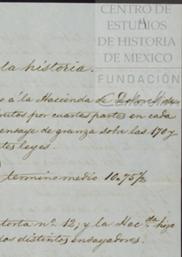 CENTRO DE
ESTUDIOS
DE HISTORIA
DE MEXICO
FUNDACIÓN
la historia.
a la Hacienda de
por cuartas partes en cada
ensaye de granza sobre las 170 y
tes leyes.
termino medio 10.75%
torta nº 12; y la Hacda hizo
distintos ensayadores.